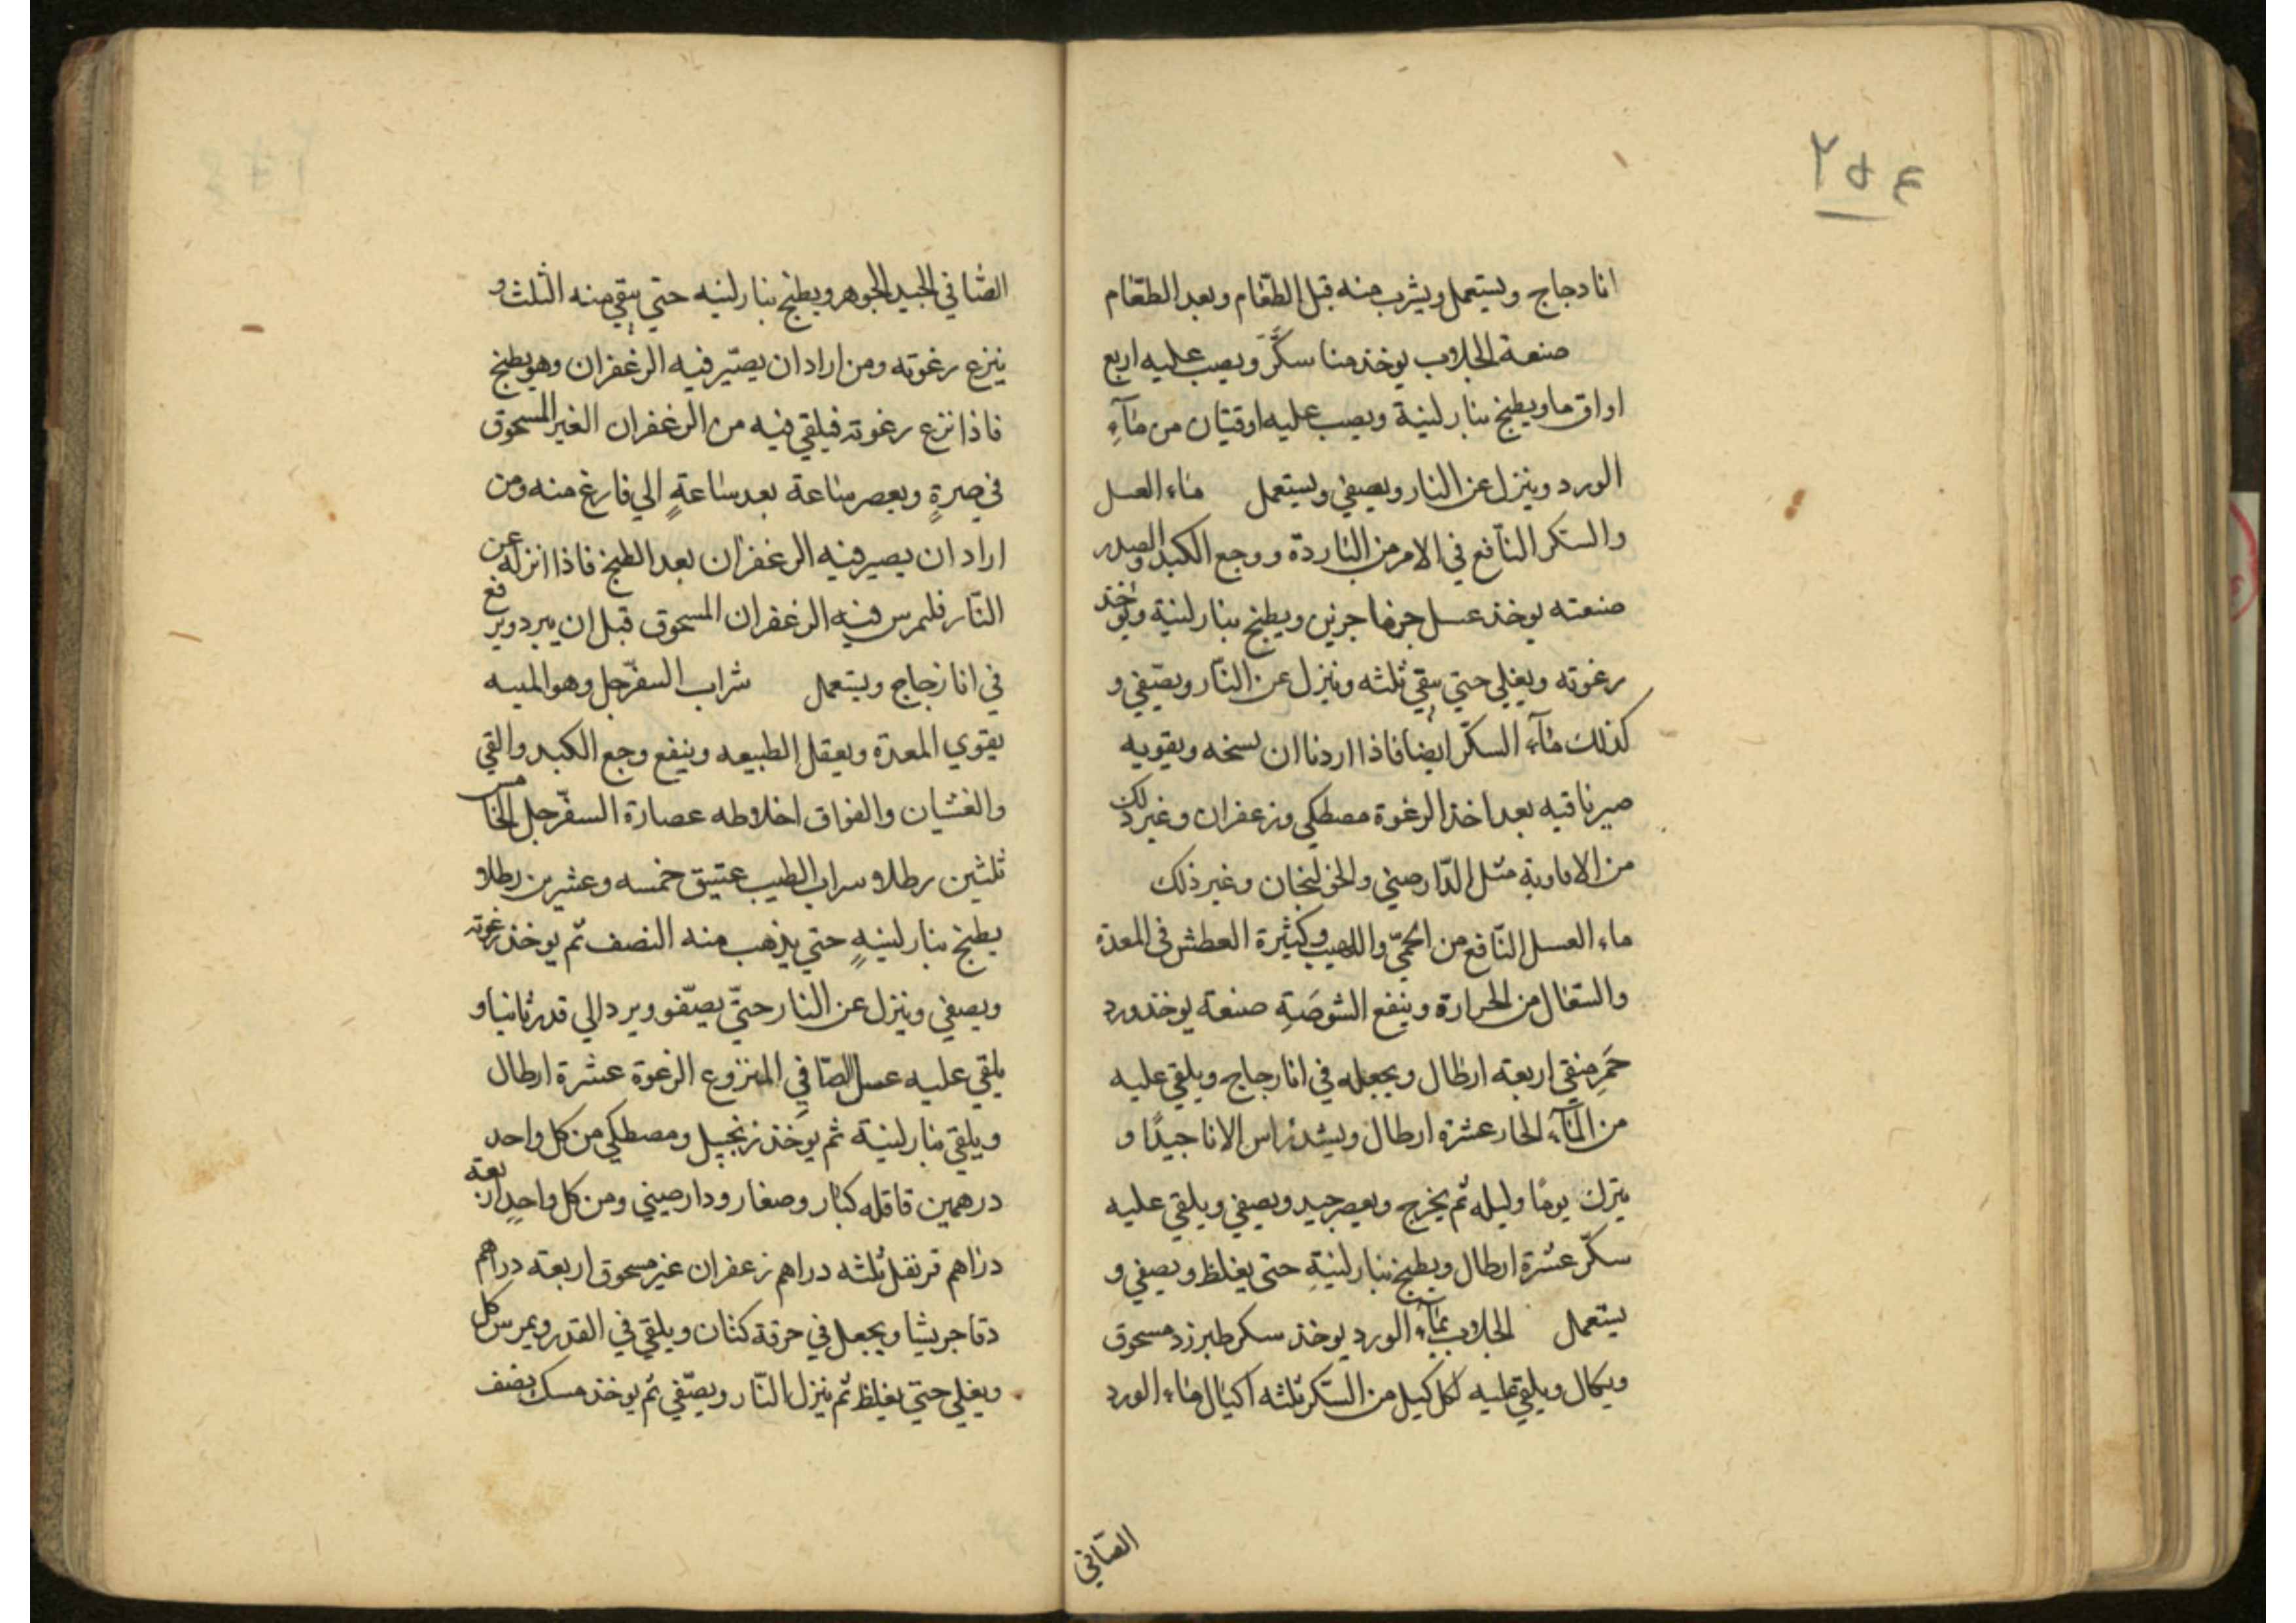 ٢٥٤
انا دجاج ويستعمل ويشرب منه قبل الطعام وبعد الطعام
صنعة الجلاب يوخذ منا سكر ويصب عليه اربع
اواق ما ويطبخ بنار لينة ويصب عليه اوقيتان من مآءِ
الورد وينزل عن النار ويصفي ويستعمل ماء العسل
والسكر النافع في الامرمن الباردة ووجع الكبد والصدر
صنعته يوخذ عسل جزءا جزين ويطبخ بنار لينة ويوخذ
رغوته ويغلي حتي يبقي ثلثه وينزل عن النّار ويصّفي و
كذلك مآء السكّر ايضا فاذا اردنا ان نسخنه ويقويه
صيرنا فيه بعد اخذ الرغوة مصطكي وزعفران وغير ذلك
من الافاوية مثل الدّارصيني والخولنجان وغير ذلك
ماء العسل النّافع من الحمّي واللهيب وكثيرة العطش في المعدة
والسعال من الحرارة وينفع الشوصَةِ صنعة يوخذ ورد
حَمرِ منقي اربعة ارطال ويجعله في انا رجاج ويلقي عليه
من المآء الحار عشرة ارطال ويشد راس الانا جيدًا و
يترك يومًا وليله ثم يخرج ويعصر جيد ويصفي ويلقي عليه
سكّر عشرة ارطال ويطبخ بنار لينةِ حتى يغلظ ويصفي و
يستعمل الجلاب بمآء الورد يوخذ سكر طبرزد مسحوق
ويكال ويلقي عليه لكل كيل من السّكر ثلثه اكيال ماء الورد
الصّافي
الصّافي الجيد الجوهر ويطبخ بنار لينه حتي يبقي منه الثلث و
ينزع رغوته ومن اراد ان يصّير فيه الزعفران وهو يطبخ
فاذا نزع رغوته فيلقي فيه من الزعفران الغير المسحوق
في صرةٍ ويعصر ساعة بعد ساعةٍ الي فارغ منه ومن
اراد ان يصير فيه الزعفران بعد الطبخ فاذا انزله عن
النّار فليمرس فيه الزعفران المسحوق قبل ان يبرد ويرفع
في انا زجاج ويستعمل شراب السفرّجل وهو الميبه
يقوي المعدة ويعقل الطبيعه وينفع وجع الكبد والقي
والغشيان والفواق اخلاطه عصارة السفرّجل الخامس
ثلثين رطلا وسراب الطيب عتيق خمسه وعشرين رطلا و
يطبخ بنار لينهٍ حتي يذهب منه النصف ثم يوخذ رغوته
ويصفي وينزل عن النار حتّي يصّفو ويرد الي قدر ثانيا و
يلقي عليه عسل الصّافِي المنزوع الرغوة عشرة ارطال
ويلقي بنار لينة ثم يوخذ زنجبيل ومصطكي من كل واحد
درهمين قاقله كبار وصغار ودارصيني ومن كل واحدٍ اربعة
دراهم قرنفل ثلثه دراهم زعفران غير مسحوق اربعة دراهم
دقا جريشا ويجعل في خرقة كتان ويلقي في القدر ويمرس كل
ويغلي حتي يغلظ ثم ينزل النّار ويصّفي ثم يوخذ مسك نصف